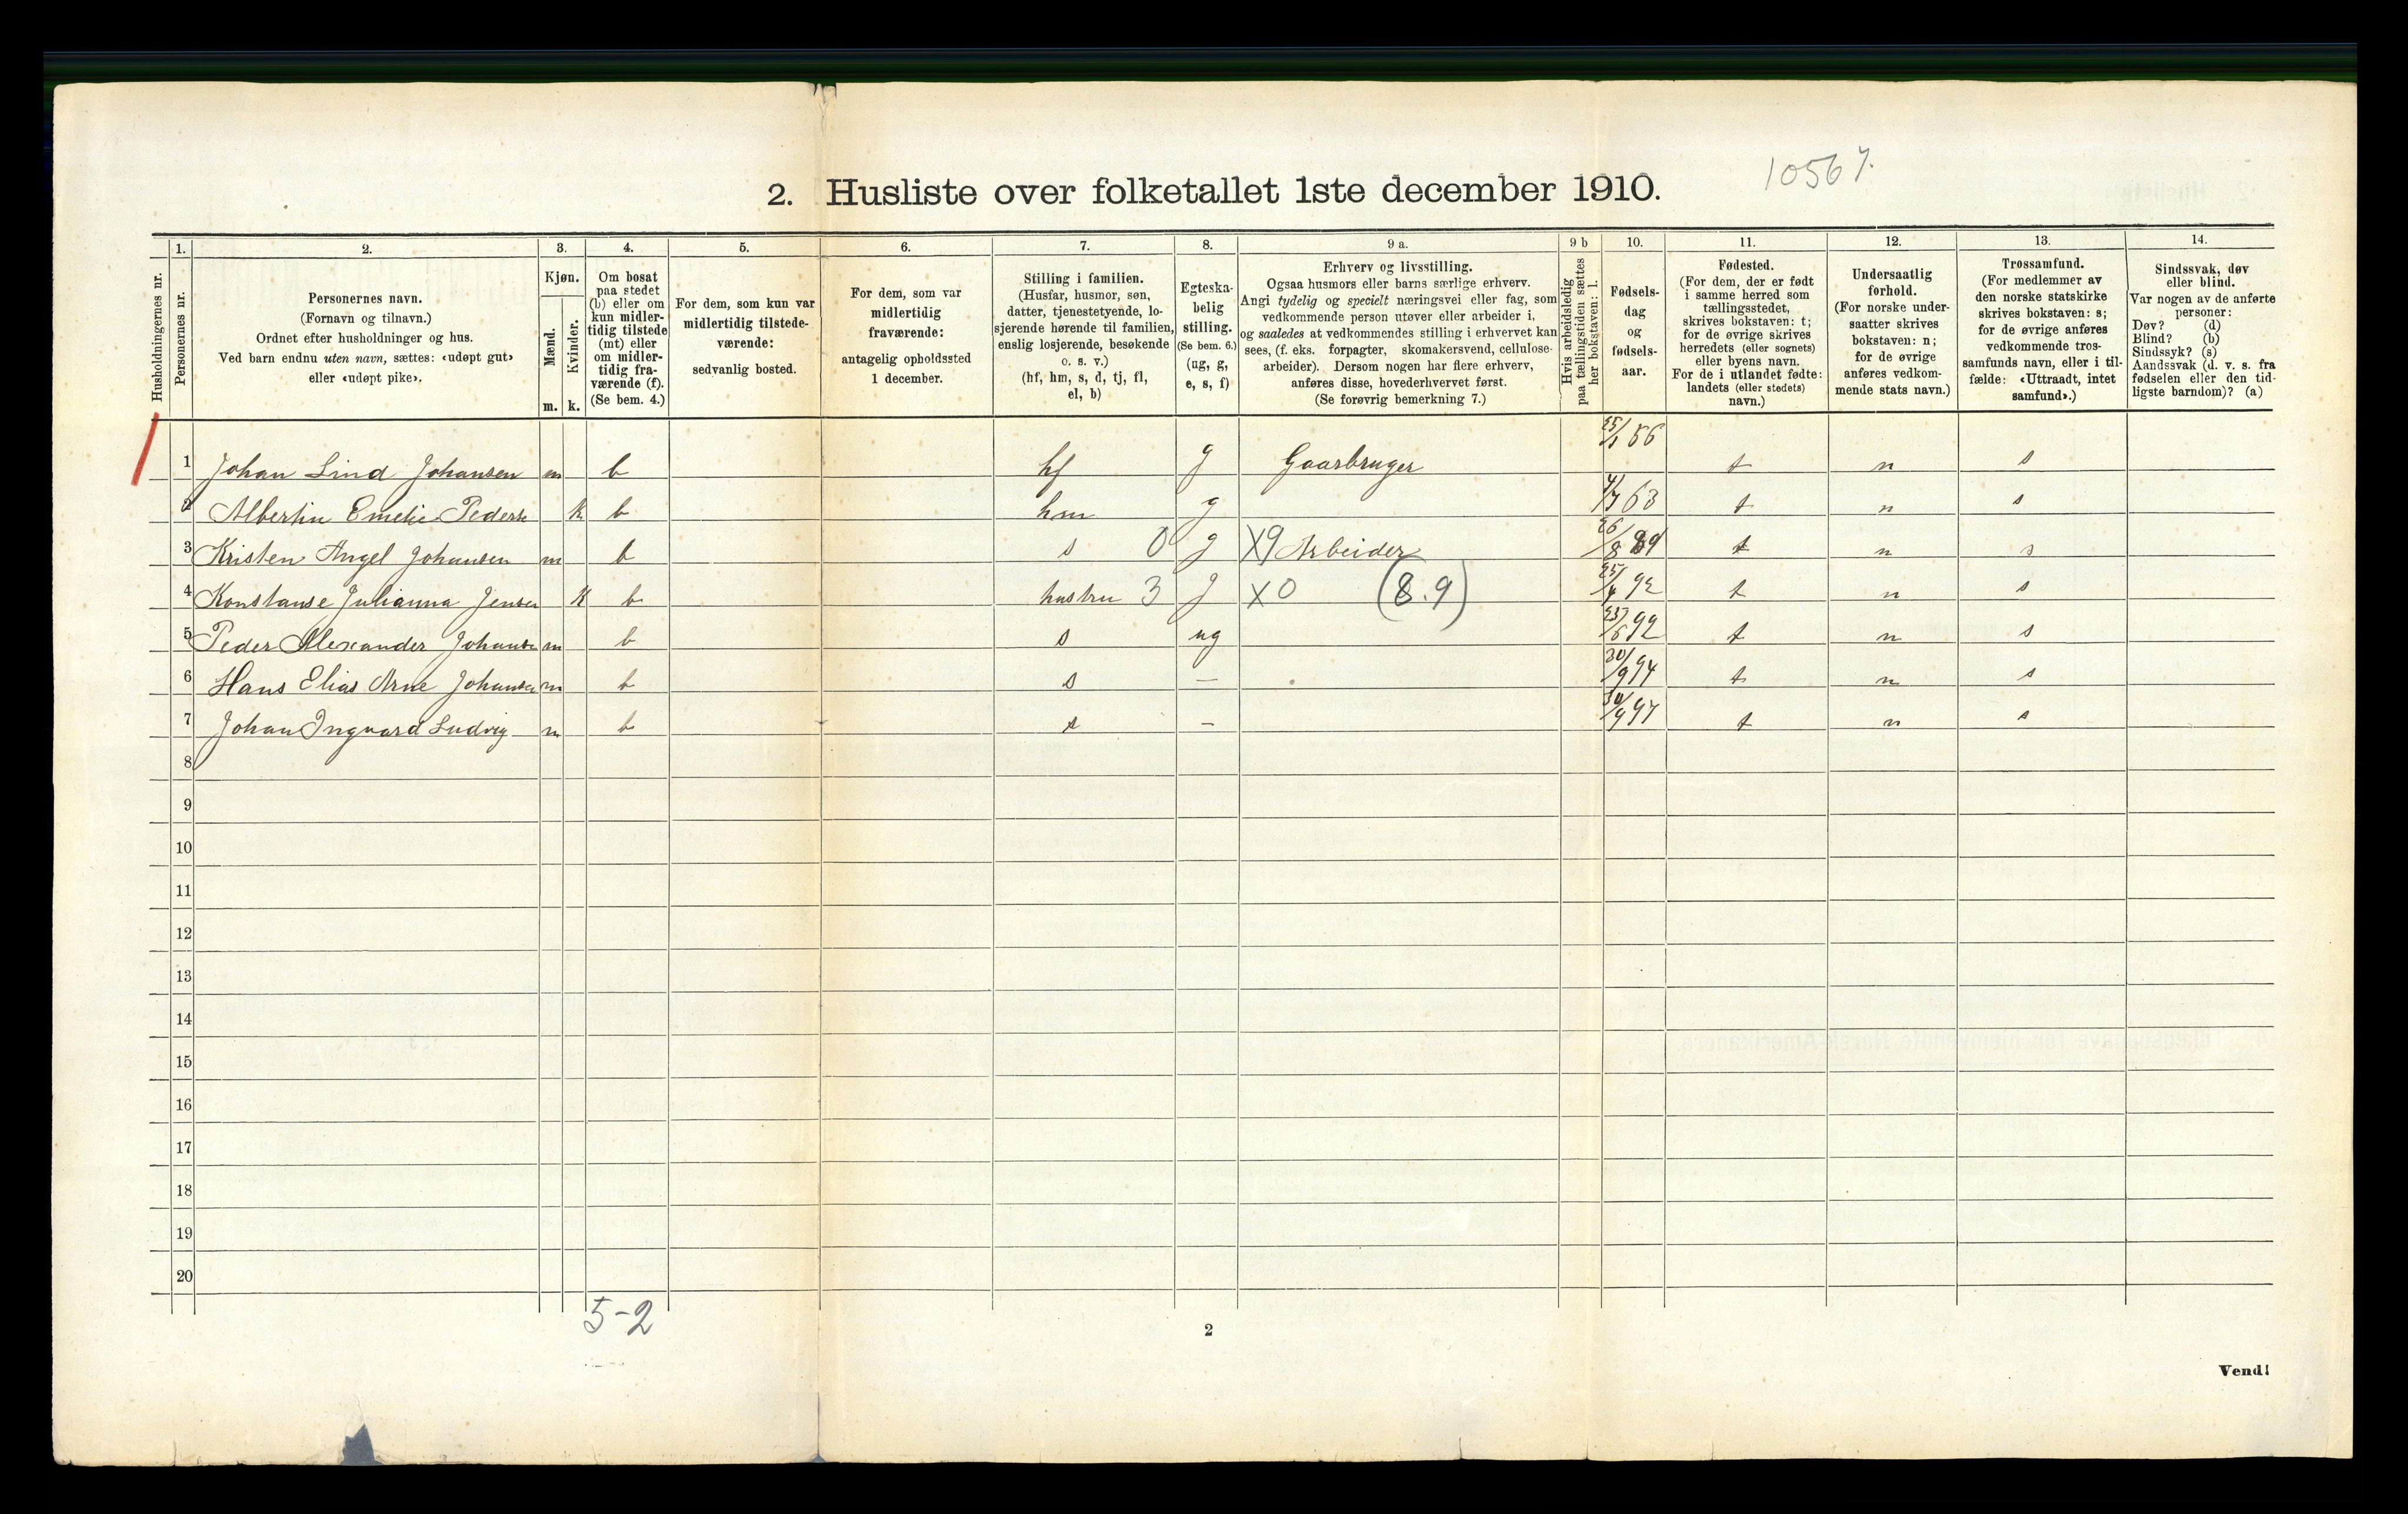 10567.
2. Husliste over folketallet 1ste december 1910.
Husholdningernes nr.
1. Personernes nr.
2. Personernes navn. (Fornavn og tilnavn.) Ordnet efter husholdninger og hus. Ved barn endnu uten navn, sættes: «udøpt gut» eller «udøpt pike».
3. Kjøn. Mænd. m. Kvinder. k.
4. Om bosat paa stedet (b) eller om kun midlertidig tilstede (mt) eller om midlertidig fraværende (f). (Se bem. 4.)
5. For dem, som kun var midlertidig tilstedeværende: sedvanlig bosted.
6. For dem, som var midlertidig fraværende: antagelig opholdssted 1 december.
7. Stilling i familien. (Husfar, husmor, søn, datter, tjenestetyende, losjerende hørende til familien, enslig losjerende, besøkende o. s. v.) (hf, hm, s, d, tj, fl, el, b)
8. Egteskabelig stilling. (Se bem. 6.) (ug, g, e, s, f)
9 a. Erhverv og livsstilling. Ogsaa husmors eller barns særlige erhverv. Angi tydelig og specielt næringsvei eller fag, som vedkommende person utøver eller arbeider i, og saaledes at vedkommendes stilling i erhvervet kan sees, (f. eks. forpagter, skomakersvend, cellulosearbeider). Dersom nogen har flere erhverv, anføres disse, hovederhvervet først. (Se forøvrig bemerkning 7.)
9 b Hvis arbeidsledig paa tællingstiden sættes her bokstaven: l.
10. Fødselsdag og fødselsaar.
11. Fødested. (For dem, der er født i samme herred som tællingsstedet, skrives bokstaven: t; for de øvrige skrives herredets (eller sognets) eller byens navn. For de i utlandet fødte: landets (eller stedets) navn.)
12. Undersaatlig forhold. (For norske undersaatter skrives bokstaven: n; for de øvrige anføres vedkommende stats navn.)
13. Trossamfund. (For medlemmer av den norske statskirke skrives bokstaven: s; for de øvrige anføres vedkommende trossamfunds navn, eller i tilfælde: «Uttraadt, intet samfund».)
14. Sindssvak, døv eller blind. Var nogen av de anførte personer: Døv? (d) Blind? (b) Sindssyk? (s) Aandssvak (d. v. s. fra fødselen eller den tidligste barndom)? (a)
1 Johan Lind Johansen m b hf g Gaarbruger 25/1 56 t n s
2 Albertin Emelie Peders k b hm g 4/7 63 t n s
3 Kristen Angel Johansen m b s 0 g X9 Arbeider 26/8 89 t n s
4 Konstanse Julianna Jensen k b hustru 3 g X0 (8.9) 25/4 92 t n s
5 Peder Alexander Johansen m b s ug 23/6 92 t n s
6 Hans Elias Arne Johansen m b s — 30/9 94 t n s
7 Johan Ingvard Ludvig m b s — 30/9 97 t n s
8
9
10
11
12
13
14
15
16
17
18
19
20
5-2
2
Vend!